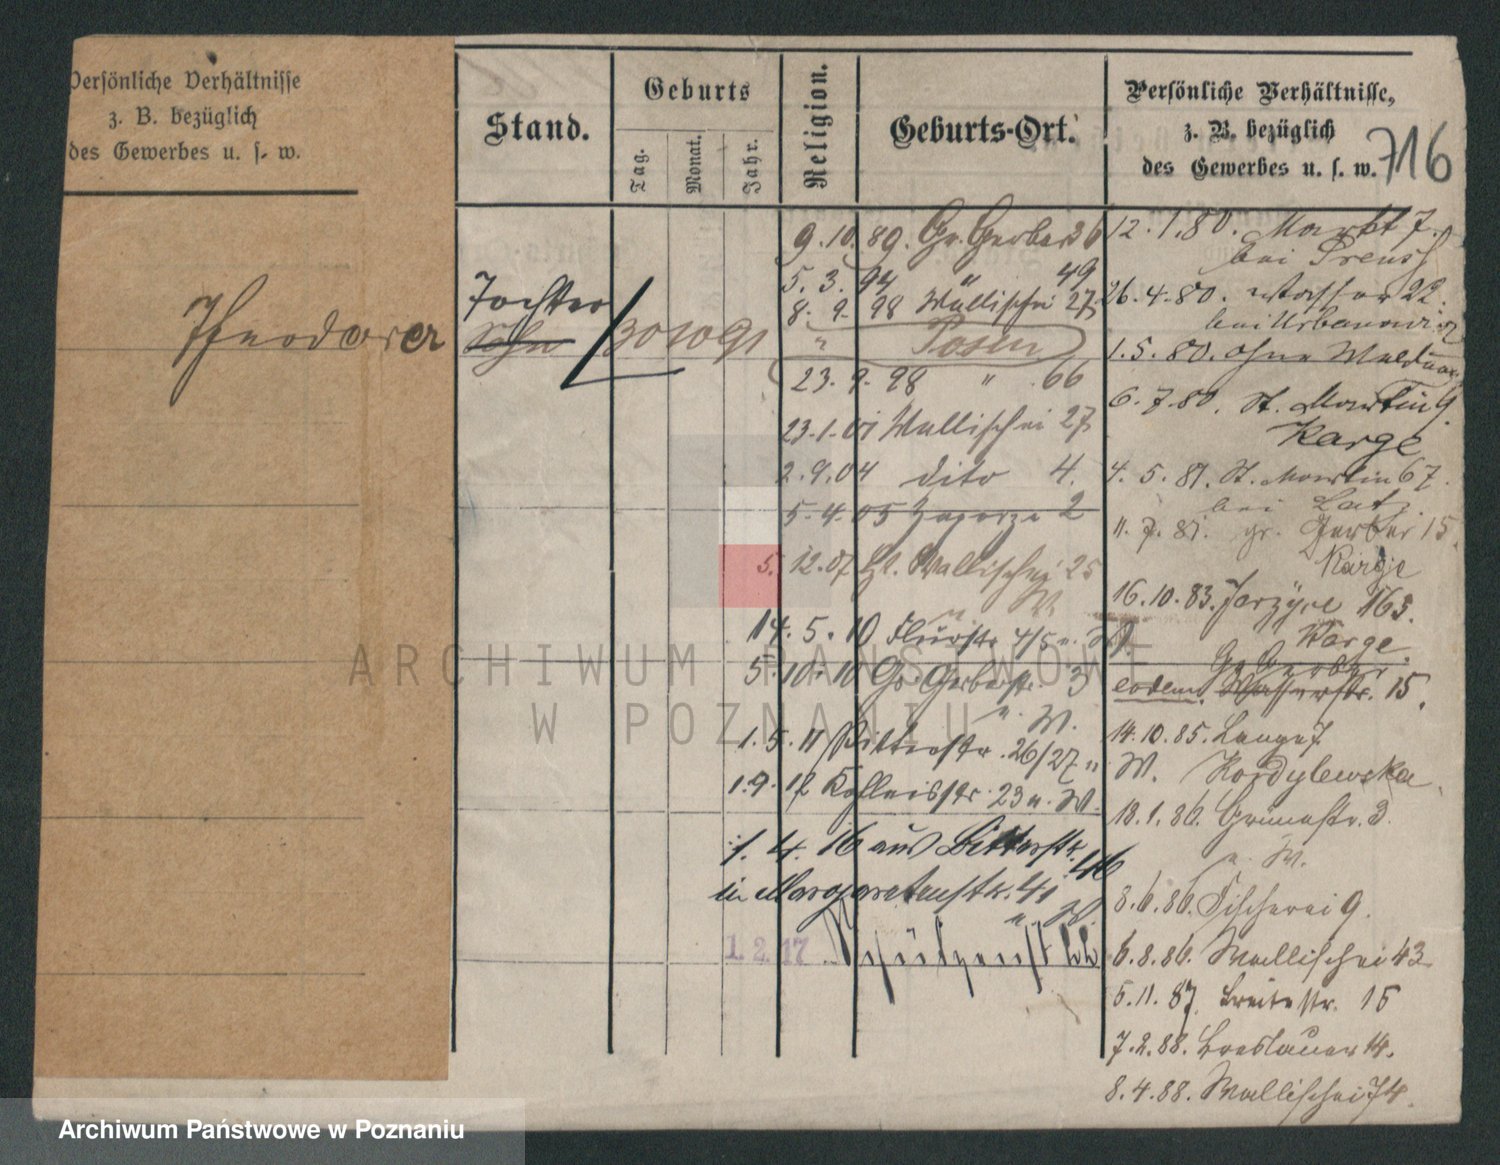 Persönliche Verhältnisse
z. B. bezüglich
des Gewerbes u. s. w.
Stand.
Geburts
Tag.
Monat.
Jahr.
Religion.
Geburts-Ort.
Persönliche Verhältnisse,
z. B. bezüglich
des Gewerbes u. s. w.
716
Tochter
Sohn
30 10 91
9. 10. 89. Gr. Gerber 36
5. 3. 94 " 49
8. 9. 98 Wallischei 27
" Posen
23. 9. 98 " 66
23. 1. 01 Wallischei 27
2. 9. 04 dito 4.
5. 4. 05 Zagorze 2
5. 12. 07 Kl. Wallischei 25
u. W.
14. 5. 10 Flurstr. 4/5 u. W.
5. 10. 10 Gr. Gerberstr. 3
u. W.
1. 5. 11 Ritterstr. 26/27 u
1. 9. 12 23 u. W.
1. 4. 16 aus Bitterstr. 46
in Margaretenstr. 41
u. W.
1. 2. 17
12. 1. 80. Markt 7.
bei Preuss
26. 4. 80. Wasser 22.
bei Urbanowicz
1. 5. 80. ohne Meldung
6. 7. 80. St. Martin 9.
Karge
4. 5. 81. St. Martin 67.
bei
11. 7. 81. gr. Gerber 15.
Karge
16. 10. 83. Jerzyce 163.
Karge
Gr. Gerber
eodem. Wasserstr. 15.
14. 10. 85. Lange 7
W. Kordylewska.
18. 1. 86. Grünestr. 3.
u. W.
8. 6. 86. Fischerei 9.
6. 8. 86. Wallischei 43
5. 11. 87. Breitestr. 15
7. 2. 88. Breslauer 14.
8. 4. 88. Wallischei 74.
ARCHIWUM PAŃSTWOWE
W POZNANIU
Archiwum Państwowe w Poznaniu